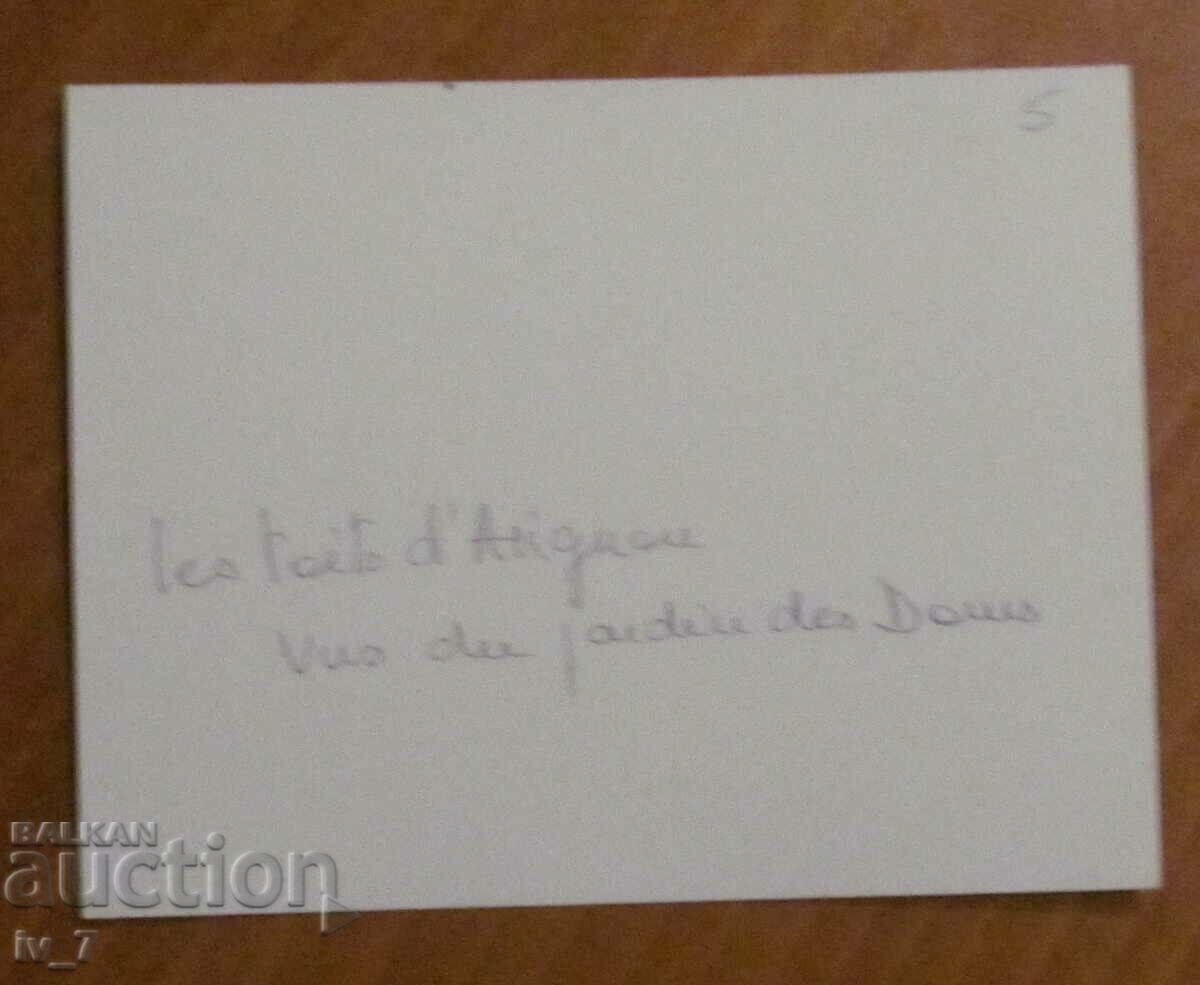 5
les toits d'Avignon
vus du jardin des Doms
BALKAN
auction
iv_7